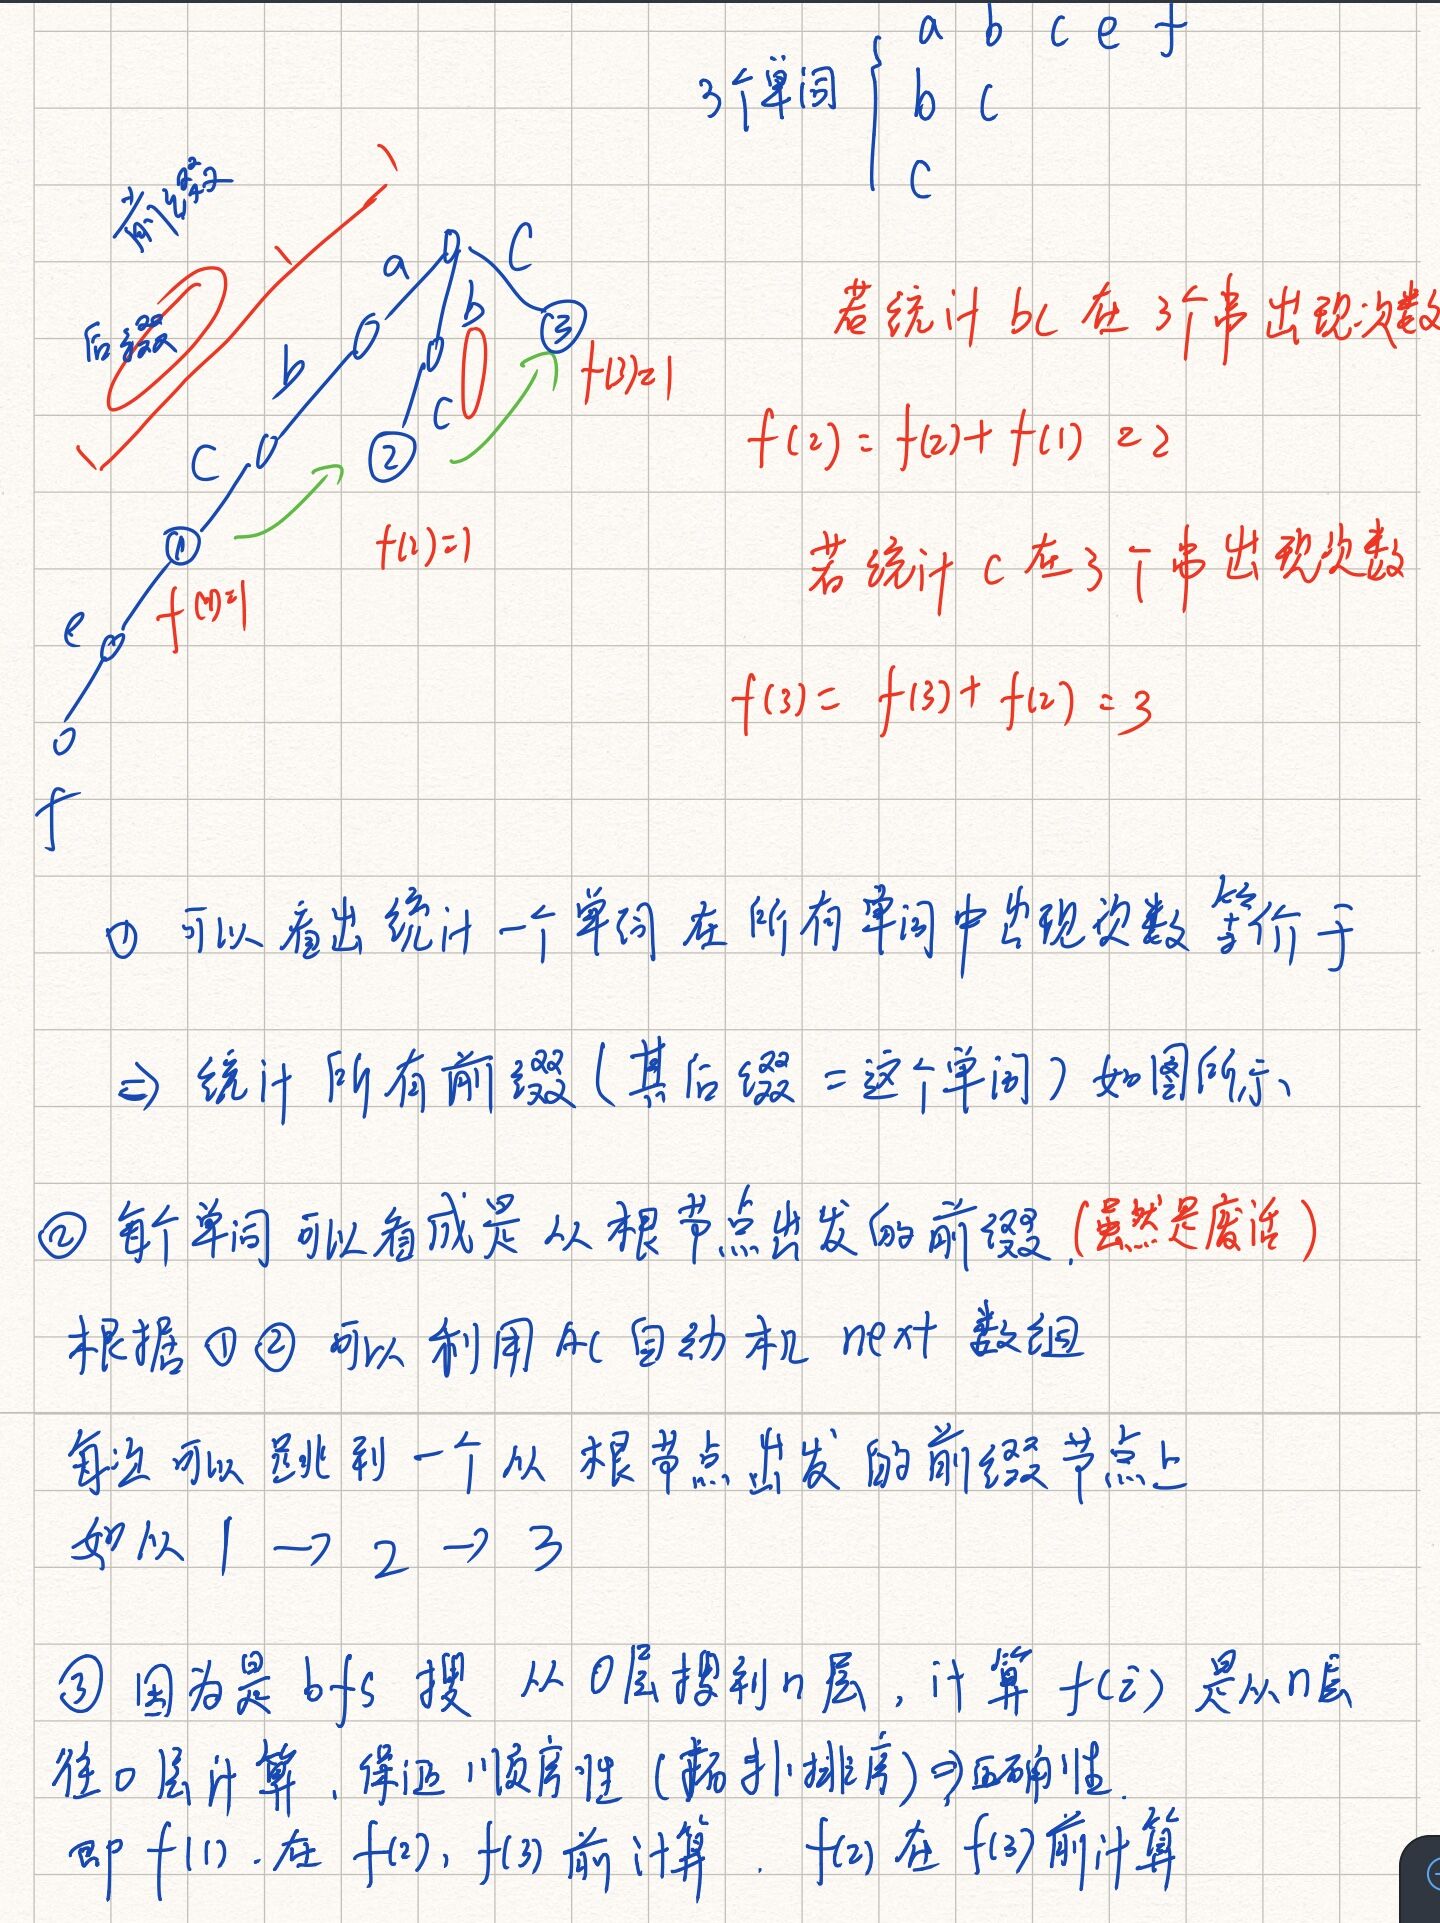 a b c e f
3个单词 b c
c
前缀
后缀
a b c
b c
c
e
f
① ② ③
f(1)=1
f(2)=1
f(3)=1
若统计 bc 在 3个串出现次数
f(2) = f(2)+ f(1) = 2
若统计 c 在 3个串出现次数
f(3) = f(3)+ f(2) = 3
① 可以看出统计一个单词在所有单词中出现次数等价于
=> 统计所有前缀(其后缀 = 这个单词) 如图所示、
② 每个单词可以看成是从根节点出发的前缀. (虽然是废话)
根据 ① ② 可以利用 AC 自动机 next 数组
每次可以跳到一个从根节点出发的前缀节点上
如从 1 → 2 → 3
③ 因为是 bfs 搜 从 0层搜到 n层, 计算 f(i) 是从 n层
往 0 层计算, 保证顺序性 (拓扑排序) => 正确性.
即 f(1). 在 f(2), f(3) 前计算. f(2) 在 f(3) 前计算